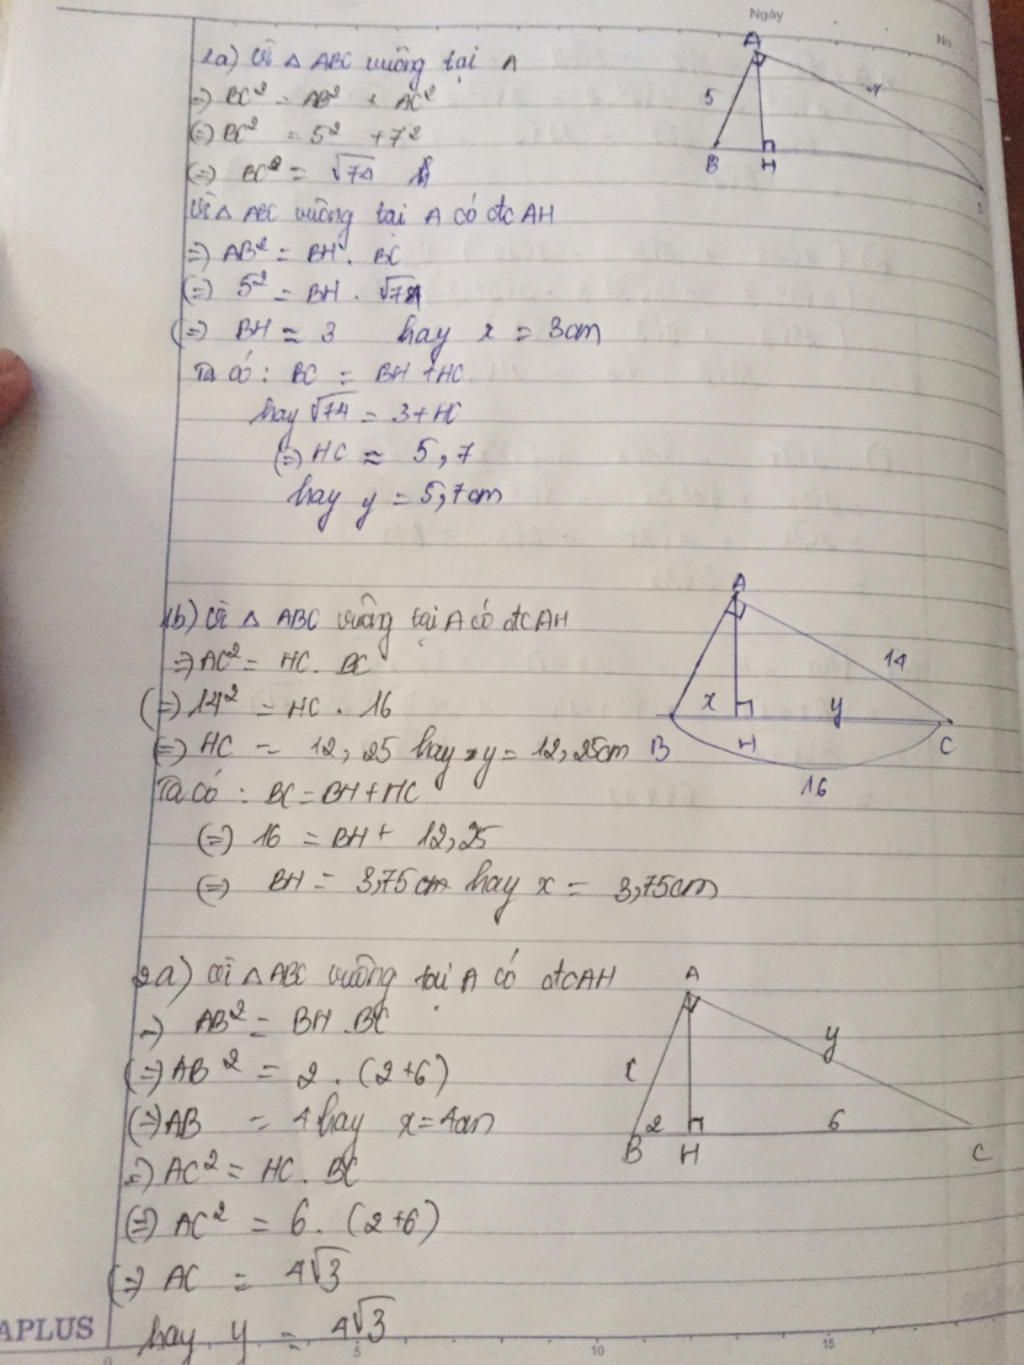 Ngày
No.
1a) Vì △ ABC vuông tại A
=) BC² = AB² + AC²
(=) BC² = 5² + 7²
(=) BC² = √74
Vì △ ABC vuông tại A có đcAH
=) AB² = BH . BC
(=) 5² = BH . √74
(=) BH ≈ 3 hay x = 3cm
Ta có : BC = BH + HC
hay √74 = 3 + HC
(=) HC ≈ 5,7
hay y = 5,7cm
A
5
7
B
H
1b) Vì △ ABC vuông tại A có đcAH
=) AC² = HC . BC
(=) 14² = HC . 16
(=) HC = 12,25 hay y = 12,25cm
Ta có : BC = BH + HC
(=) 16 = BH + 12,25
(=) BH = 3,75cm hay x = 3,75cm
A
14
x
y
B
H
C
16
2a) Vì △ ABC vuông tại A có đcAH
=) AB² = BH . BC
(=) AB² = 2 . (2+6)
(=) AB = 4 hay x = 4cm
=) AC² = HC . BC
(=) AC² = 6 . (2+6)
(=) AC = 4√3
hay y = 4√3
A
x
y
2
6
B
H
C
APLUS
0
5
10
15